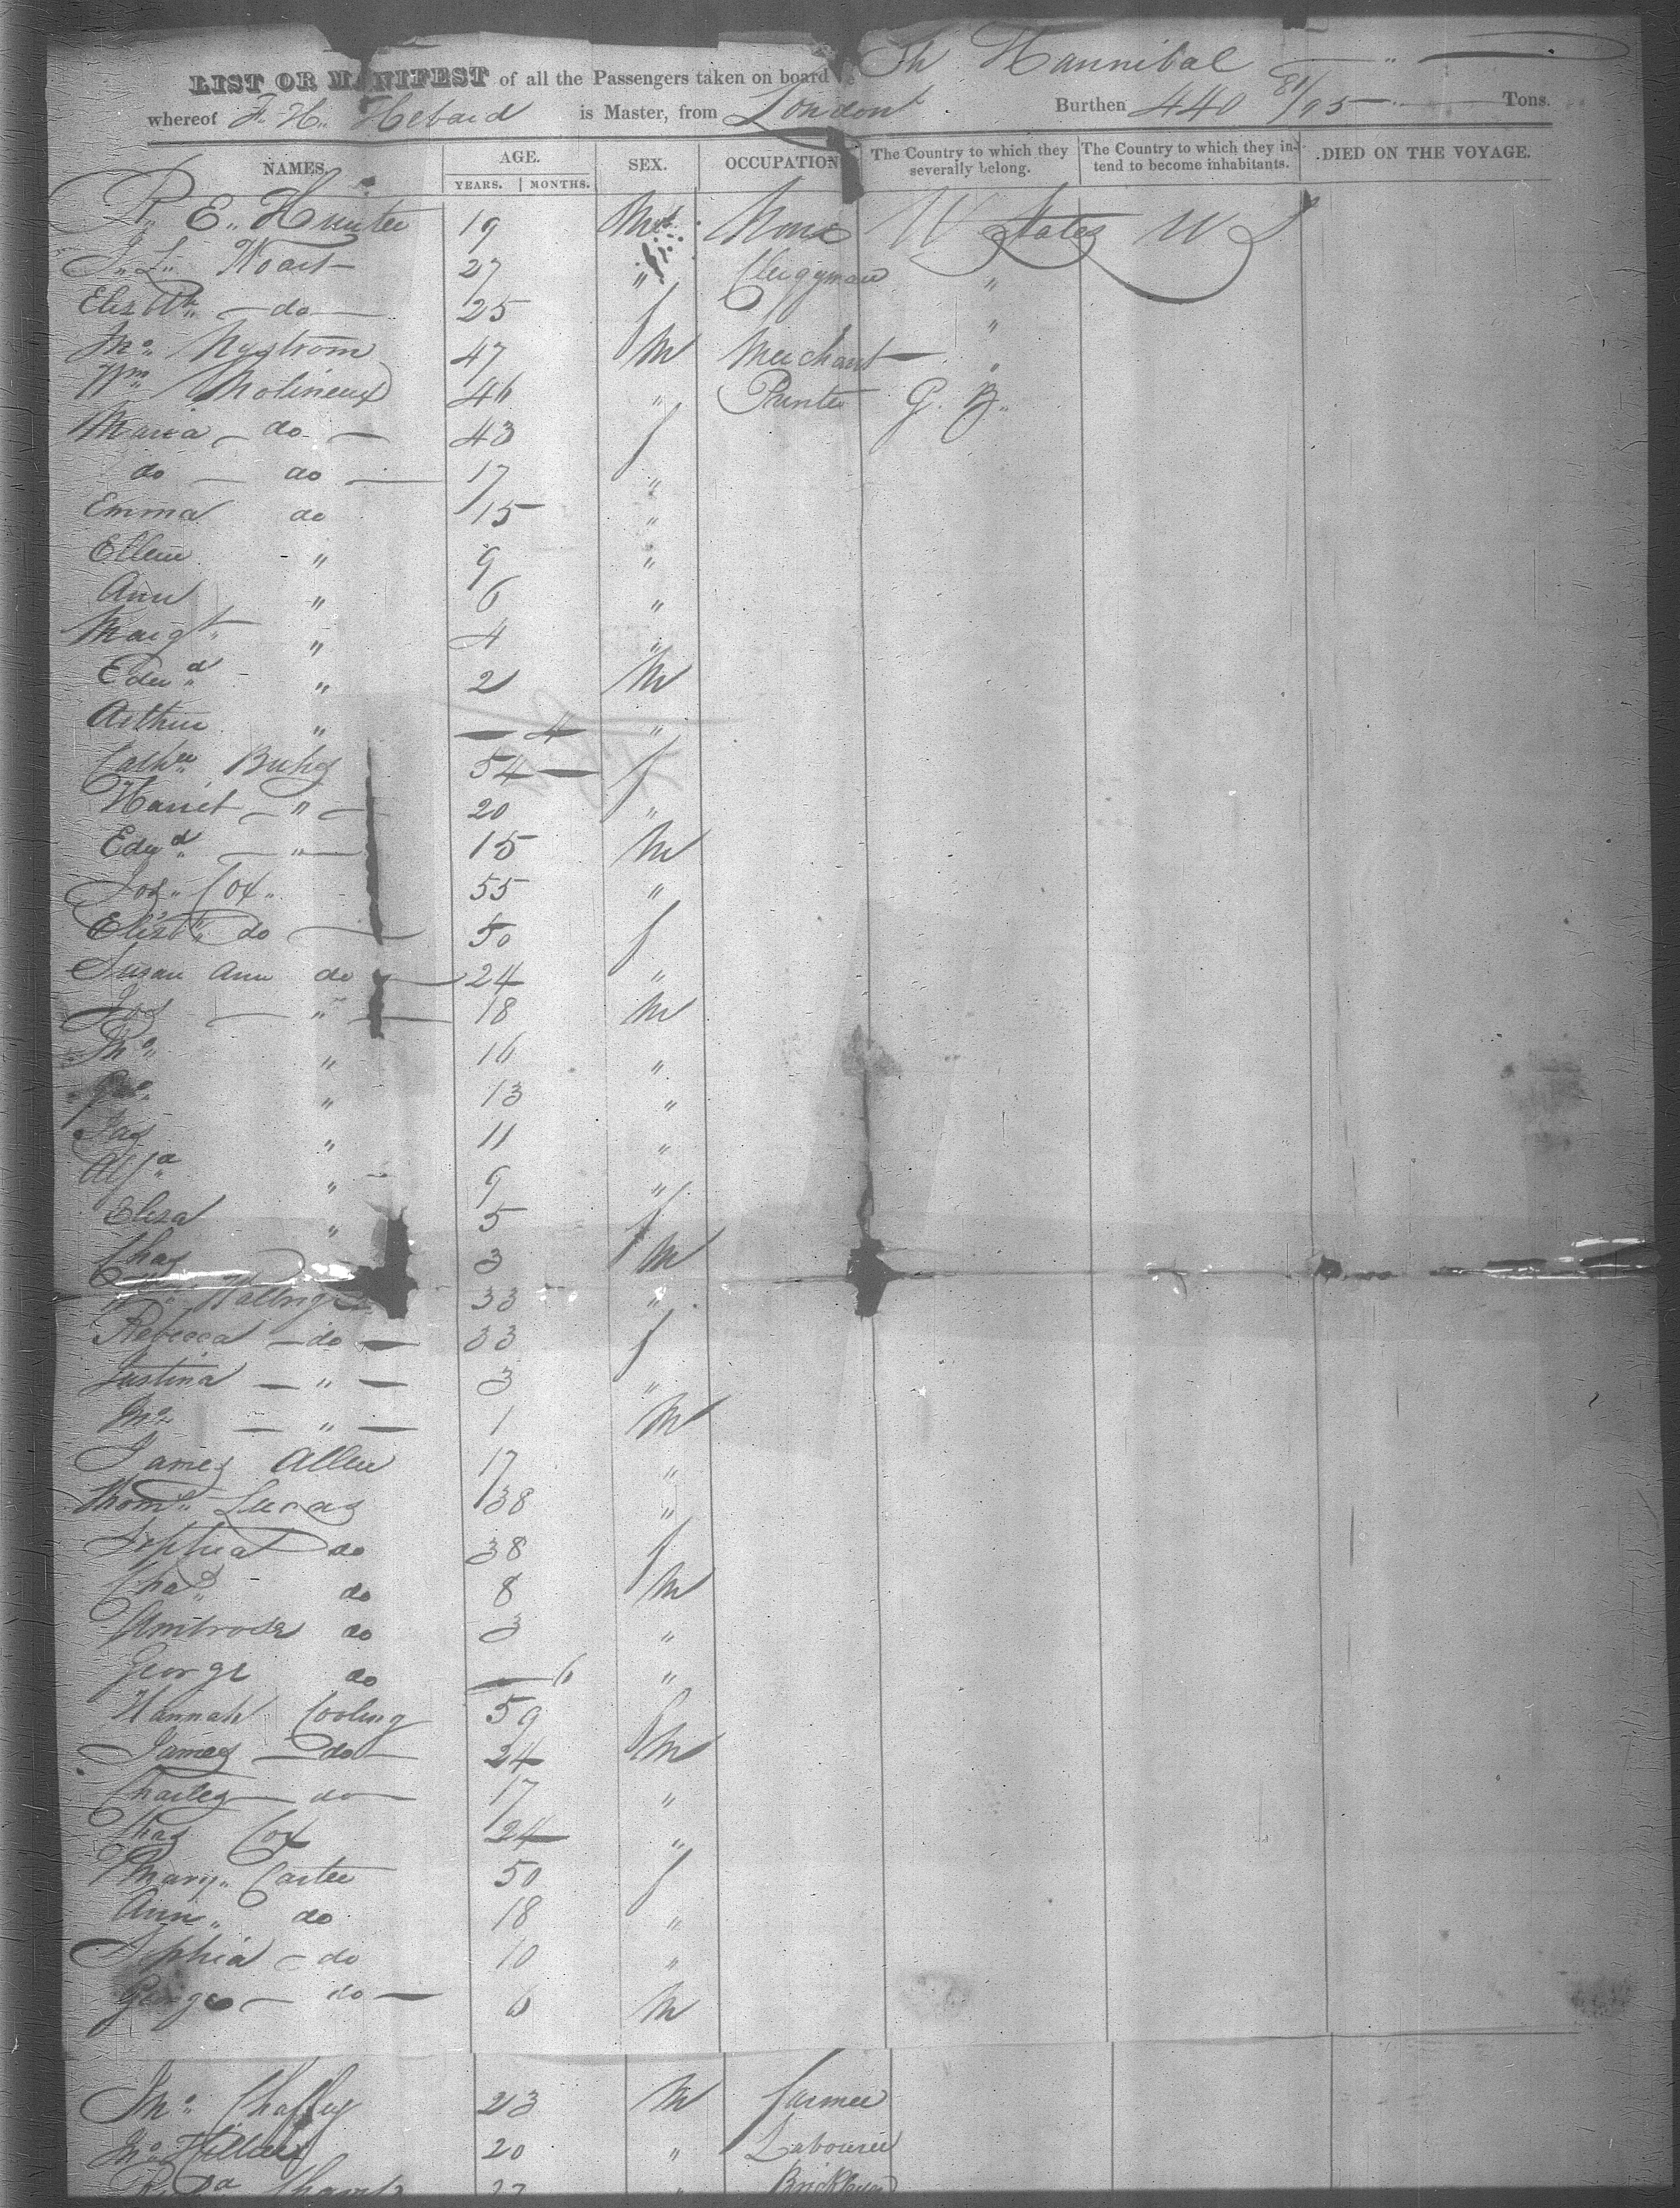 LIST OR MANIFEST of all the Passengers taken on board Sh Hannibal
whereof F. H. Hebard is Master, from London Burthen 440 81/95 Tons.
NAMES. AGE. SEX. OCCUPATION The Country to which they severally belong. The Country to which they intend to become inhabitants. DIED ON THE VOYAGE.
YEARS. MONTHS.
R. E. Hunter 19 M None U States U S
J. L. Woart 27 " Clergyman "
Elizth do 25 f "
Jno. Nystrom 47 M Merchant "
Wm Molineux 46 " Printer G. B.
Maria do 43 f
do do 17 "
Emma do 15 "
Ellen " 9 "
Ann " 6 "
Margt " 4 "
Edwd " 2 M
Arthur " 4 "
Cathne 54 f
Harriet " 20 "
Edwd " 15 M
Jos. Cox 55 "
Elizth do 50 f
Susan Ann do 24 "
Jos " 18 M
Jno. " 16 "
Geo. " 13 "
Jas " 11 "
Alfd " 9 "
Eliza " 5 f
Chas 3 M
33 "
Rebecca do 33 f
Justina " 3 "
Jno " 1 M
James Allen 17 "
Thoms. Lucas 38 "
Sophia do 38 f
Chas do 8 M
Ambrose do 3 "
George do 6 "
Hannah Cooling 59 f
James do 24 M
Charles do 17 "
Chas Cox 24 "
Mary Carter 50 f
Ann do 18 "
Sophia do 10 "
George do 6 M
Jno. Chaffey 23 M farmer
Jno. 20 " Labourer
27 " Bricklayer